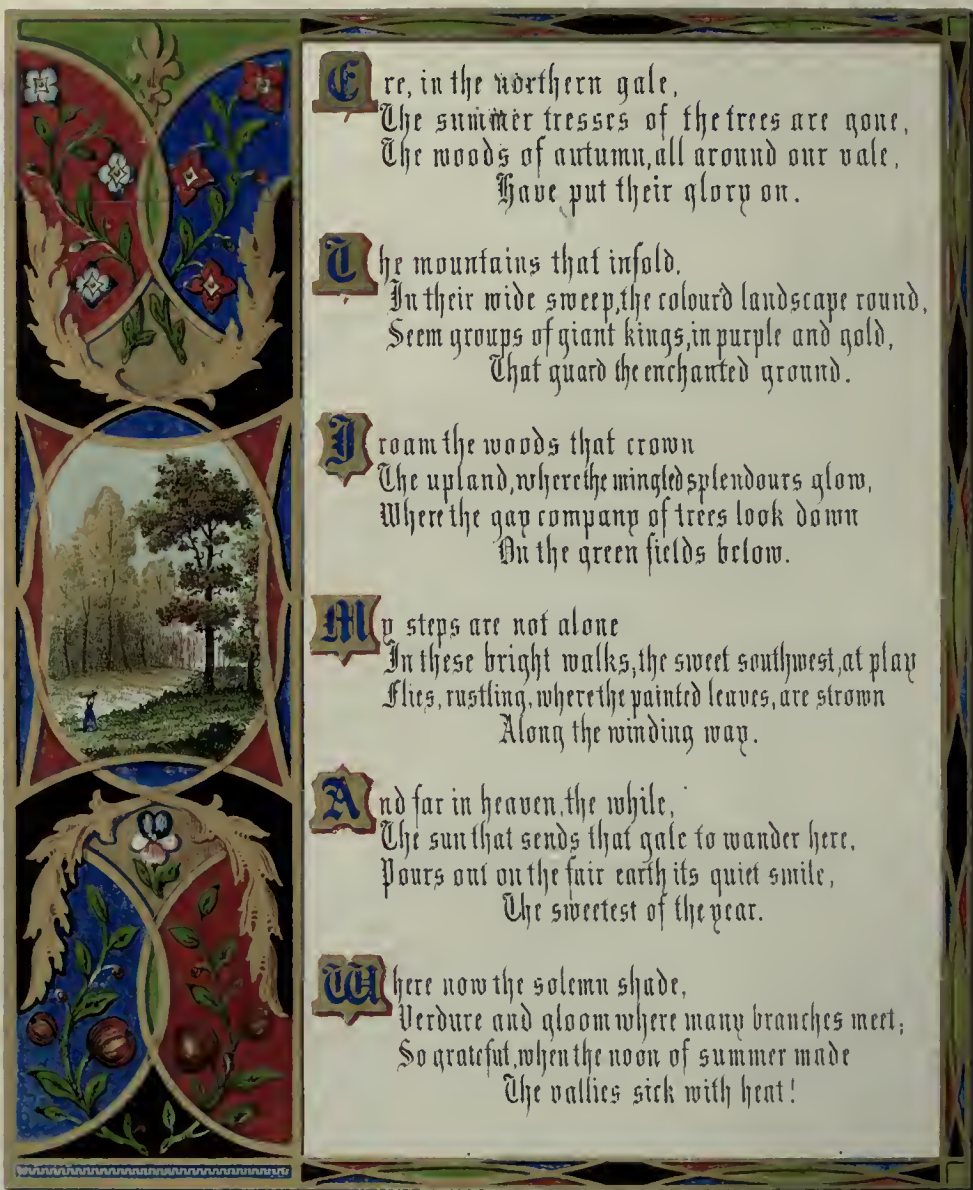 Ere, in the northern gale,
The summer tresses of the trees are gone,
The woods of autumn, all around our vale,
Have put their glory on.
The mountains that infold,
In their wide sweep, the colour'd landscape round,
Seem groups of giant kings, in purple and gold,
That guard the enchanted ground.
I roam the woods that crown
The upland, where the mingled splendours glow,
Where the gay company of trees look down
On the green fields below.
My steps are not alone
In these bright walks, the sweet southwest, at play
Flies, rustling, where the painted leaves, are strown
Along the winding way.
And far in heaven, the while,
The sun that sends that gale to wander here,
Pours out on the fair earth its quiet smile,
The sweetest of the year.
Where now the solemn shade,
Verdure and gloom where many branches meet;
So grateful, when the noon of summer made
The vallies sick with heat!